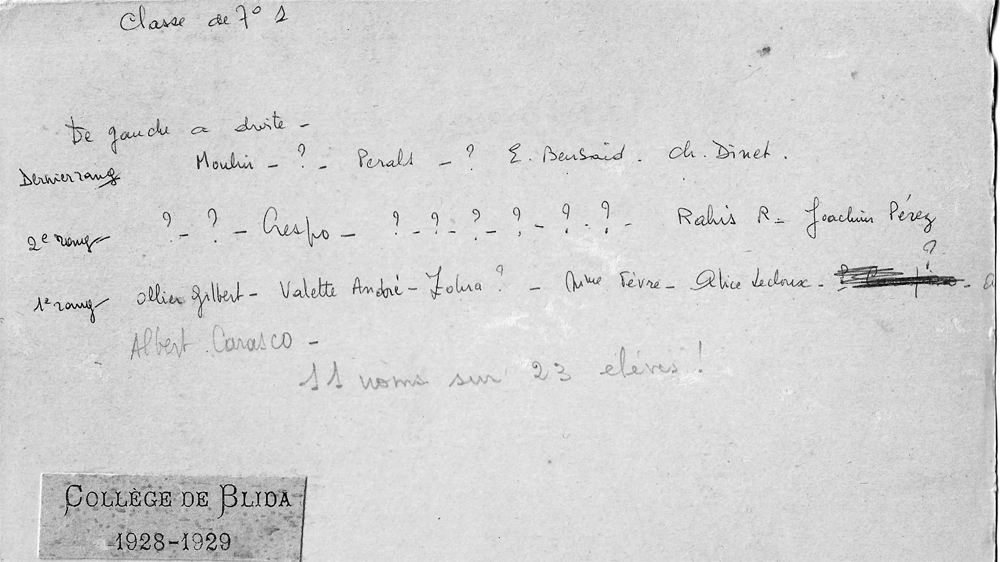 Classe de 7° 1
De gauche a droite -
Dernier rang Moulin - ? - Perals - ? E. Bensaid. Ch. Dinet.
2e rang ? - ? - Crespo - ? - ? - ? - ? - ? - ? - Rahis R - Joachim Pérez
?
1e rang Ollier Gilbert - Valette André - Zohra ? - Mme Fèvre - Alice Ledoux -
Albert Carasco -
11 noms sur 23 élèves !
COLLÈGE DE BLIDA
1928-1929